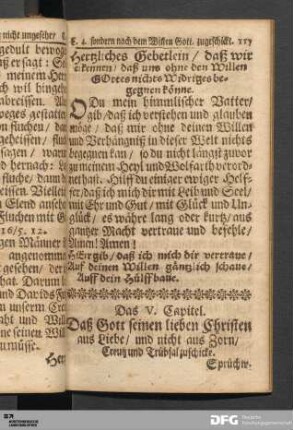 nicht ungefehr
gedult bewog
ß er sagt: S
meinem Her
wil ich hin
abreissen. A
stuchen / da
geheissen / flu
sagen / war
hernach:
eissen. Vielle
Elend anseh
Fluchen mit G
16/5. 12.
gen Männer
angenomm
gesehen / der
hat. Darum
und Davids F
unserm Cre
aht und Will
urnüsse.
Her
C. 4. sondern nach dem Willen Gott. zugeschickt. 115
Hertzliches Gebetlein / daß wir
erkennen / daß uns ohne den Willen
GOttes nichts Widriges be-
gegnen könne.
O Du mein himmlischer Vatter /
gib / daß ich verstehen und glauben
möge / daß mir ohne deinen Willen
und Verhängnüß in dieser Welt nichts
begegnen kan / so du nicht längst zuvor
zu meinem Heyl und Welfarth verord-
net hast. Hilff du einiger ewiger Helf-
fer / daß ich mich dir mit Leib und Seel /
mit Ehr und Gut / mit Glück und Un-
glück / es währe lang oder kurtz / aus
gantzer Macht vertraue und befehle /
Amen! Amen!
HErr gib / daß ich mich dir vertraue /
Auf deinen Willen gäntzlich schaue /
Auff dein Hülff baue.
Das V. Capitel.
Daß Gott seinen lieben Christen
aus Liebe / und nicht aus Zorn /
Creutz und Trübsal zuschicke.
Sprüche.
DFG